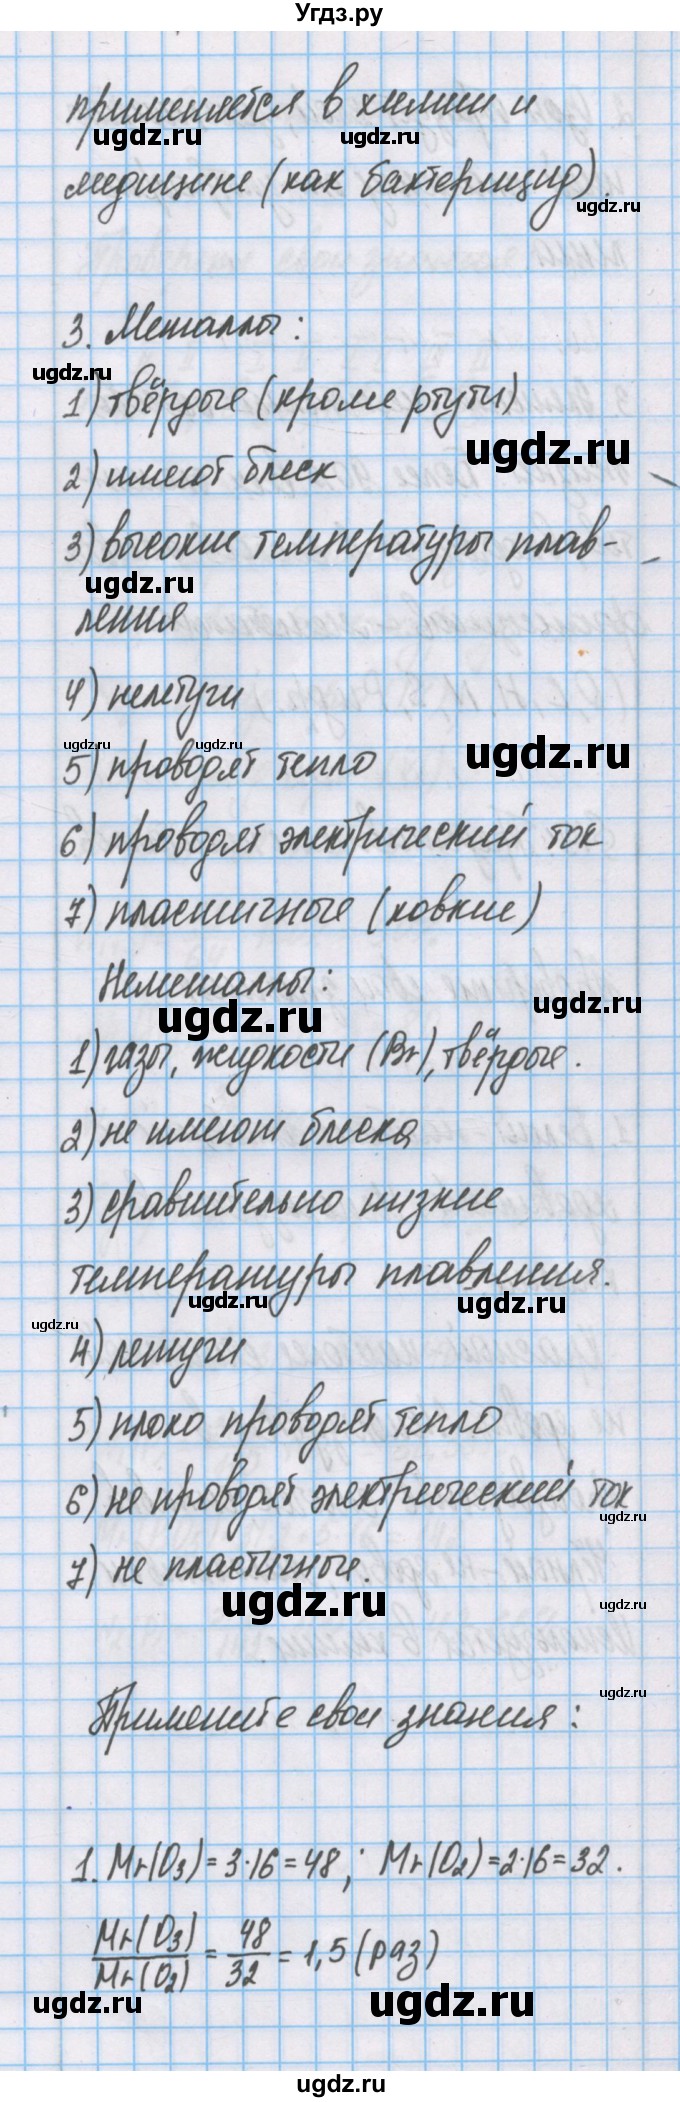 Угдз.ру
применяется в химии и
ugdz.ru ugdz.ru
медицине (как бактерицид).
ugdz.ru
3. Металлы:
ugdz.ru
1) твёрдые (кроме ртути)
ugdz.ru
2) имеют блеск
3) высокие температуры плав-
ugdz.ru
ления
4) нелетучи
ugdz.ru ugdz.ru ugdz.ru
5) проводят тепло
6) проводят электрический ток
7) пластичные (ковкие)
Неметаллы:
ugdz.ru ugdz.ru
1) газы, жидкости (Br), твёрдые.
2) не имеют блеска
3) сравнительно низкие
температуры плавления.
ugdz.ru ugdz.ru
ugdz.ru
4) летучи
5) плохо проводят тепло
6) не проводят электрический ток
ugdz.ru
7) не пластичные.
ugdz.ru ugdz.ru
ugdz.ru
Примените свои знания:
1. Mr(O3) = 3·16 = 48; Mr(O2) = 2·16 = 32.
Mr(O3)/Mr(O2) = 48/32 = 1,5 (раз)
ugdz.ru ugdz.ru
ugdz.ru